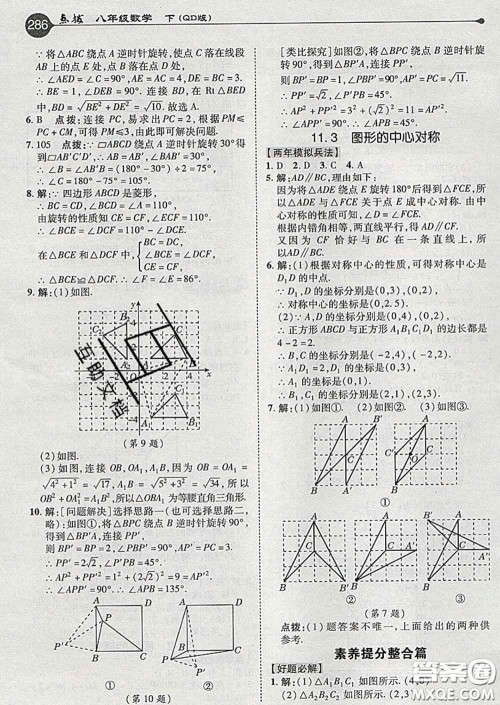 286 点拨 八年级数学 下(QD版)
∵ 将△ABC绕点A逆时针旋转,使点C落在线段
AB上的点E处,点B落在点D处,
∴ ∠AED=∠C=90°,AE=AC=4,DE=BC=3.
∴ BE=1,∠DEB=90°. 连接BD,在Rt△DEB
中,BD=√BE²+DE²=√10. 故选A.
6. B 点拨:连接PC,易求出PC=2,根据PM≤
PC,可得出PM≤2,由此即可解决问题.
7. 105 点拨:∵ □ABCD绕点A逆时针旋转30°得到
□AB′C′D′,∴ ∠BAB′=30°,AB=AB′.
∴ ∠B=∠AB′B=(180°−30°)÷2=75°.
∴ ∠C=180°−75°=105°.
8. 解:∵ 四边形ABCD是菱形,
∴ BC=DC,∠BCD=∠A=110°.
由旋转的性质知CE=CF,∠ECF=∠BCD=110°.
∴ ∠BCE=∠DCF=110°−∠DCE.
在△BCE和△DCF中,
BC=DC,
∠BCE=∠DCF,
CE=CF,
∴ △BCE≌△DCF. ∴ ∠F=∠E=86°.
9. 解:(1)如图.
(第9题)
(2)如图.
(3)如图,连接OB,OA₁,BA₁,因为OB=OA₁=
√4²+1²=√17,A₁B=√5²+3²=√34,所以
OB²+OA₁²=A₁B²,所以△OA₁B为等腰直角三角形.
10. 解:[问题解决]选择思路一(也可选择思路二,
略):如图①,将△BPC绕点B逆时针旋转90°,
得到△BP′A,连接PP′,
则BP=BP′=2,∠P′BP=90°.
∴ PP′=2√2,∠BPP′=45°.
∴ AP²+PP′²=1²+(2√2)²=9=AP′².
∴ ∠APP′=90°. ∴ ∠APB=135°.
A D A D
P P
P′ B C B C
P′
① ②
(第10题)
[类比探究]如图②,将△BPC绕点B逆时针旋转
90°,得到△BP′A,连接PP′,
∴ PP′=√2,∠BPP′=45°.
∴ AP²+PP′²=3²+(√2)²=11=AP′².
∴ ∠APP′=90°. ∴ ∠APB=45°.
11.3 图形的中心对称
【两年模拟兵法】
1. D 2. D 3. C 4. A
5. 解:AD∥BC,理由如下:
因为将△ADE绕点E旋转180°后得到△FCE,所
以△ADE与△FCE关于点E成中心对称. 由中
心对称的性质,得∠D=∠FCE.
根据内错角相等,两直线平行,得AD∥CF.
又因为CF恰好与BC在一条直线上,
所以AD∥BC.
6. 解:(1)根据对称中心的性质,可得对称中心是D₁D
的中点.
∵ D₁,D的坐标分别是(0,3),(0,2),
∴ 对称中心的坐标是(0,2.5).
(2)∵ A,D的坐标分别是(0,4),(0,2),
∴ 正方形ABCD与正方形A₁B₁C₁D₁的边长都是
4−2=2.
∴ B,C的坐标分别是(−2,4),(−2,2).
∵ A₁D₁=2,D₁的坐标是(0,3),
∴ A₁的坐标是(0,1).
∴ B₁,C₁的坐标分别是(2,1),(2,3).
7. 解:(1)如图①. (2)如图②. (3)如图③.
①
② ③
(第7题)
点拨:(1)题答案不唯一,上面给出的两种供
参考.
素养提分整合篇
【好题必解】
1. 解:(1)△A₁B₁C₁如图所示.
(2)△A₂B₂C₂如图所示.
互助文档
答案圈
MXQE.COM